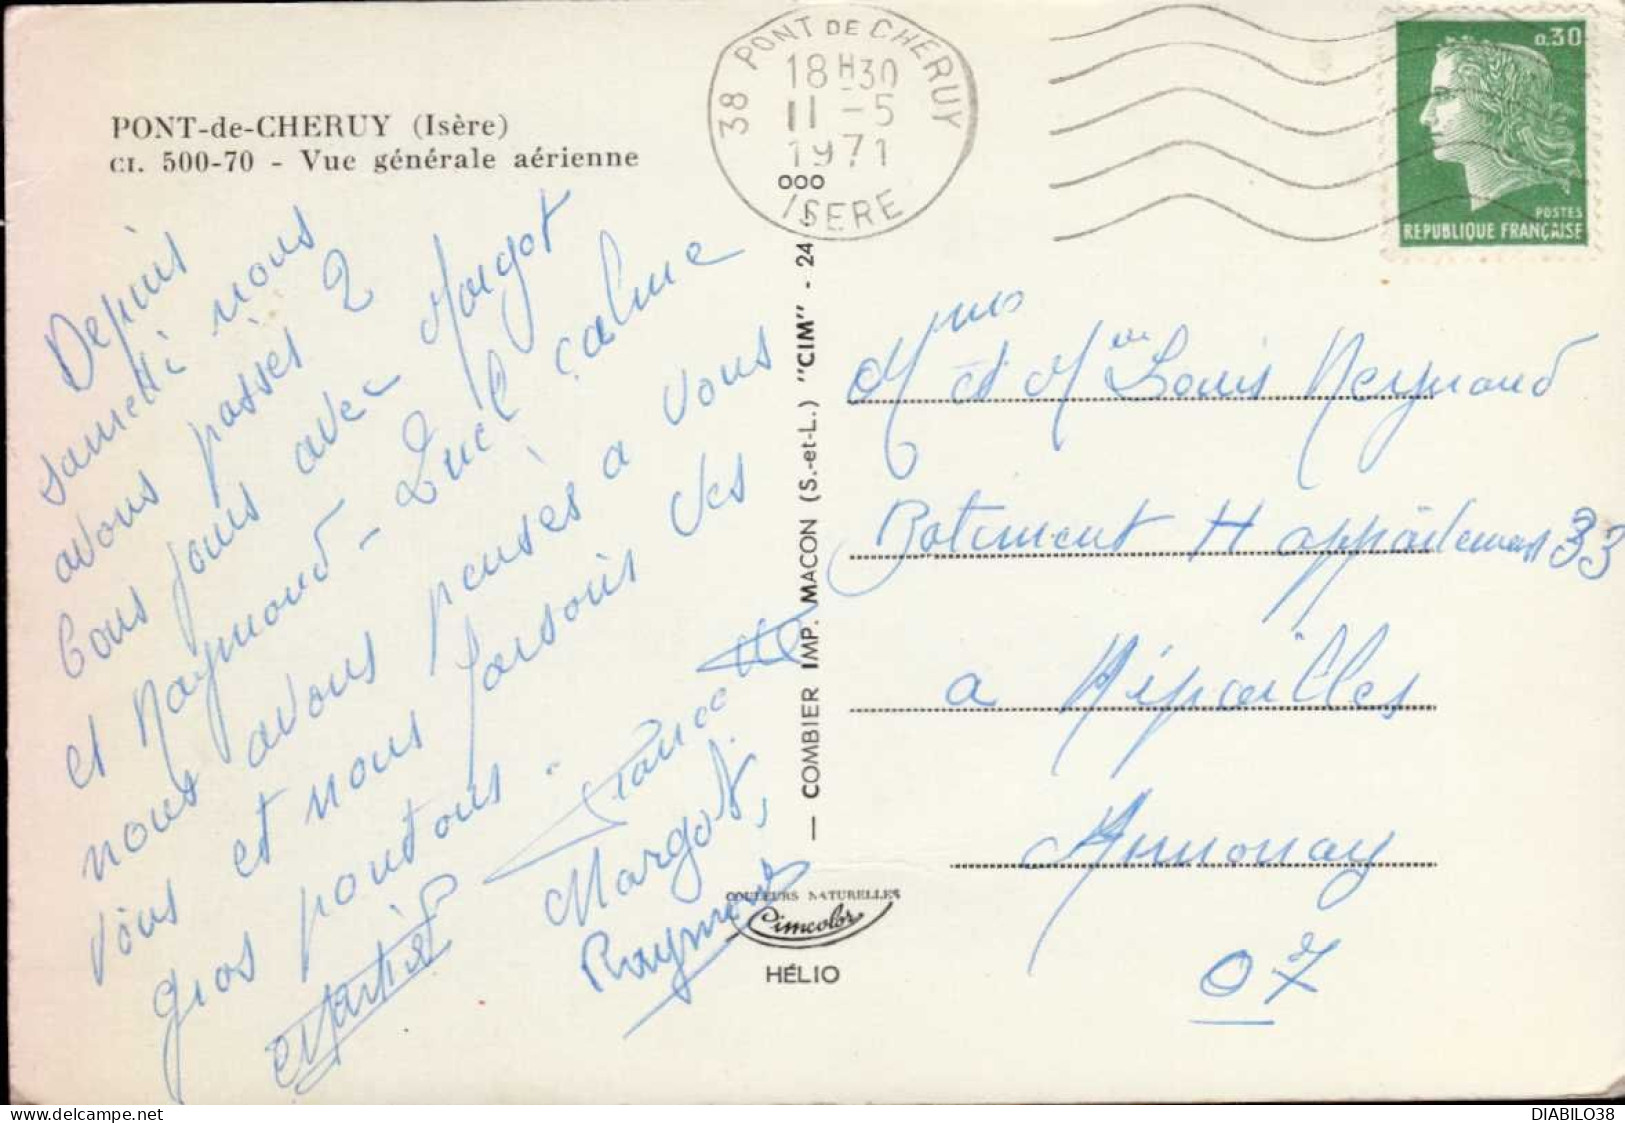 PONT-de-CHERUY (Isère)
CI. 500-70 - Vue générale aérienne
38 PONT DE CHERUY
18H30
11 -5
1971
000
ISERE
0.30
POSTES
REPUBLIQUE FRANÇAISE
Depuis
samedi nous
avons passés 2
bons jours avec Margot
et Raymond - Quel calme
nous avons pensés a vous
vous et nous faisons des
gros poutous.
Francette
Margot,
Raymond
Martial
COMBIER IMP. MACON (S.-et-L.) "CIM" - 24
COULEURS NATURELLES
Cimcolor
HÉLIO
Mme et Mr Louis Reynaud
Batiment H appartement 33
a Ripailles
Annonay
07
DIABILO38